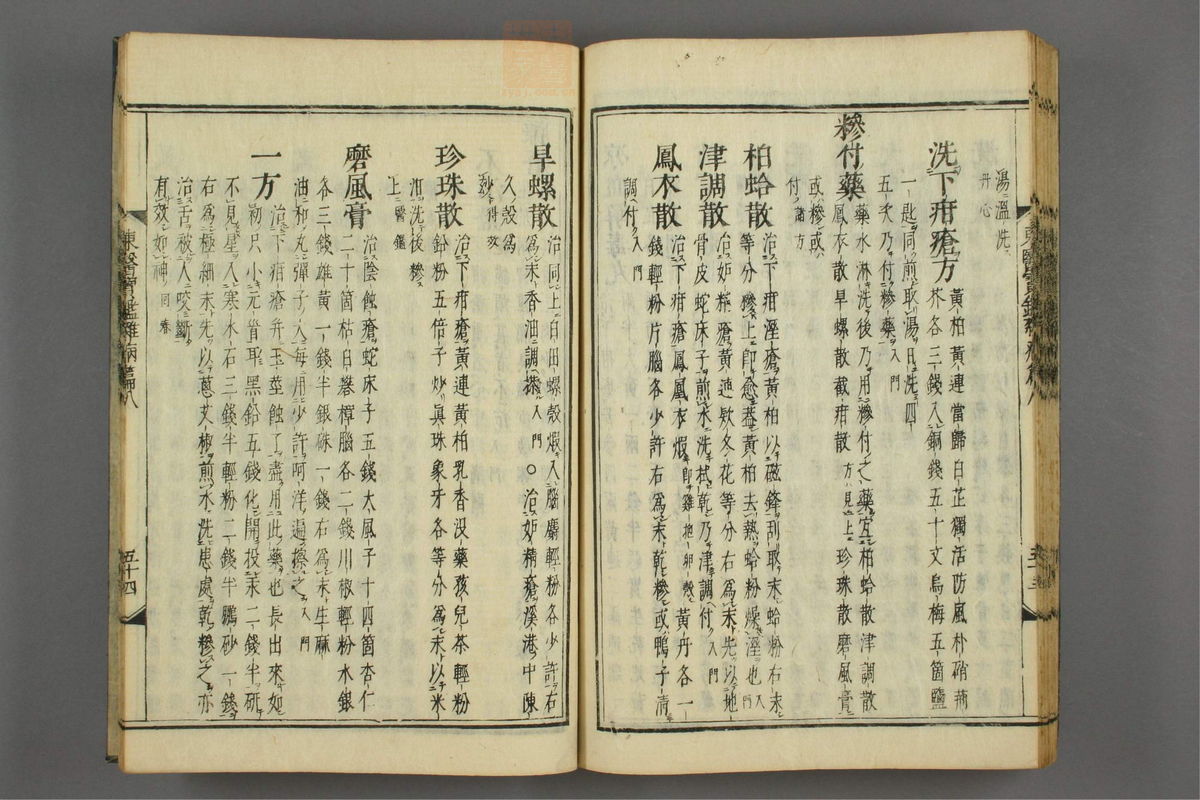 湯溫洗
丹心
洗下疳瘡方 黃柏黃連當歸白芷獨活防風朴硝荊
芥各三錢入銅錢五十文烏梅五箇鹽
一匙同煎取湯日洗四
五次乃付糝藥入門
糝付藥 藥水淋洗後乃用糝付之藥宜柏蛤散津調散
鳳衣散旱螺散截疳散方見上珍珠散磨風膏
或糝或
付諸方
柏蛤散 治下疳溼瘡黃柏以磁鋒刮取末蛤粉右末
等分糝上卽愈蓋黃柏去熱蛤粉燥溼也入門
津調散 治妬精瘡黃連欵冬花等分右爲末先以地
骨皮蛇床子煎水洗拭乾乃津調付入門
鳳衣散 治下疳瘡鳳凰衣煆卽雞抱卵殼黃丹各一
錢輕粉片腦各少許右爲末乾糝或鴨子清
調付入門
東醫寶鑑雜病篇八
旱螺散 治同上白田螺殼煆入腦麝輕粉各少許右
爲末香油調搽入門○治妬精瘡溪港中陳
久殼爲
末得效
珍珠散 治下疳瘡黃連黃柏乳香沒藥孩兒茶輕粉
鉛粉五倍子炒眞珠象牙各等分爲末以米
泔洗後糝
上醫鑑
磨風膏 治陰蝕瘡蛇床子五錢大風子十四箇杏仁
二十箇枯白礬樟腦各二錢川椒輕粉水銀
各三錢雄黃一錢半銀硃一錢右爲末生麻
油和丸彈子大每用少許呵洋遍擦之入門
一方 治下疳瘡幷玉莖蝕了盡用此藥也長出來如
初只小元首耳黑鉛五錢化開投汞二錢半硏
不見星入寒水石三錢半輕粉二錢半鵬砂一錢
右爲極細末先以蔥艾椒煎水洗患處乾糝之亦
治舌被人咬斷
有效如神回春
東醫寶鑑雜病篇八
五十四